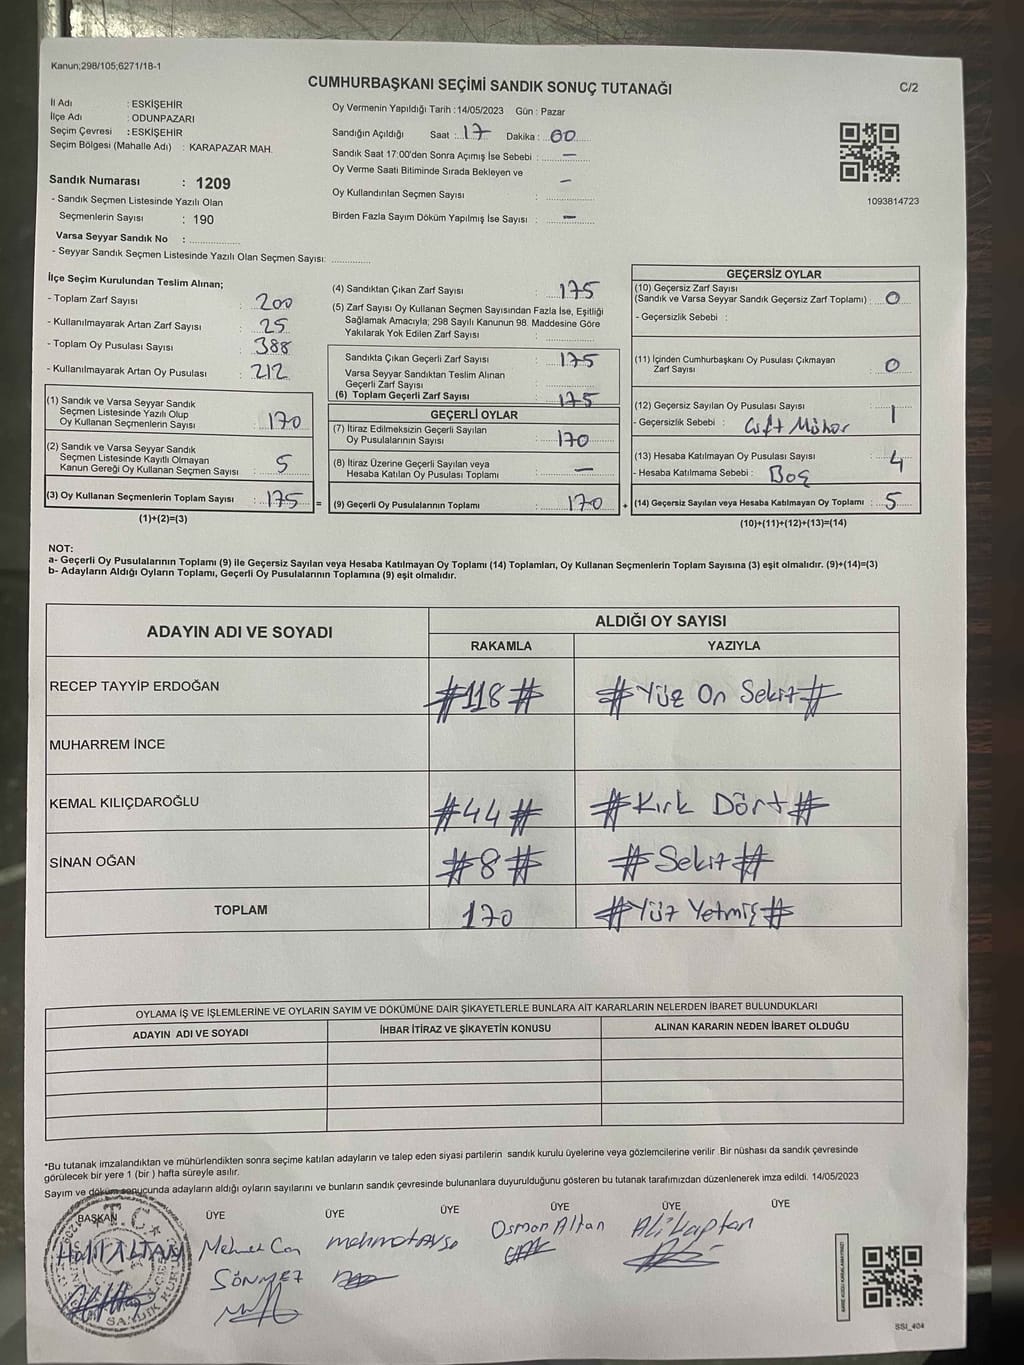 Kanun;298/105;6271/18-1
CUMHURBAŞKANI SEÇİMİ SANDIK SONUÇ TUTANAĞI
C/2
İl Adı : ESKİŞEHİR
İlçe Adı : ODUNPAZARI
Seçim Çevresi : ESKİŞEHİR
Seçim Bölgesi (Mahalle Adı) : KARAPAZAR MAH.
Sandık Numarası : 1209
- Sandık Seçmen Listesinde Yazılı Olan
Seçmenlerin Sayısı : 190
Varsa Seyyar Sandık No :
- Seyyar Sandık Seçmen Listesinde Yazılı Olan Seçmen Sayısı:
Oy Vermenin Yapıldığı Tarih :14/05/2023 Gün : Pazar
Sandığın Açıldığı Saat : 17 Dakika : 00
Sandık Saat 17:00'den Sonra Açımış İse Sebebi : —
Oy Verme Saati Bitiminde Sırada Bekleyen ve
Oy Kullandırılan Seçmen Sayısı : —
Birden Fazla Sayım Döküm Yapılmış İse Sayısı : —
1093814723
İlçe Seçim Kurulundan Teslim Alınan;
- Toplam Zarf Sayısı : 200
- Kullanılmayarak Artan Zarf Sayısı : 25
- Toplam Oy Pusulası Sayısı : 388
- Kullanılmayarak Artan Oy Pusulası : 212
(1) Sandık ve Varsa Seyyar Sandık
Seçmen Listesinde Yazılı Olup
Oy Kullanan Seçmenlerin Sayısı : 170
(2) Sandık ve Varsa Seyyar Sandık
Seçmen Listesinde Kayıtlı Olmayan
Kanun Gereği Oy Kullanan Seçmen Sayısı : 5
(3) Oy Kullanan Seçmenlerin Toplam Sayısı : 175 =
(1)+(2)=(3)
(4) Sandıktan Çıkan Zarf Sayısı : 175
(5) Zarf Sayısı Oy Kullanan Seçmen Sayısından Fazla İse, Eşitliği
Sağlamak Amacıyla; 298 Sayılı Kanunun 98. Maddesine Göre
Yakılarak Yok Edilen Zarf Sayısı :
Sandıkta Çıkan Geçerli Zarf Sayısı : 175
Varsa Seyyar Sandıktan Teslim Alınan
Geçerli Zarf Sayısı :
(6) Toplam Geçerli Zarf Sayısı : 175
GEÇERLİ OYLAR
(7) İtiraz Edilmeksizin Geçerli Sayılan
Oy Pusulalarının Sayısı : 170
(8) İtiraz Üzerine Geçerli Sayılan veya
Hesaba Katılan Oy Pusulası Toplamı : —
(9) Geçerli Oy Pusulalarının Toplamı : 170 +
GEÇERSİZ OYLAR
(10) Geçersiz Zarf Sayısı
(Sandık ve Varsa Seyyar Sandık Geçersiz Zarf Toplamı) : 0
- Geçersizlik Sebebi :
(11) İçinden Cumhurbaşkanı Oy Pusulası Çıkmayan
Zarf Sayısı : 0
(12) Geçersiz Sayılan Oy Pusulası Sayısı : 1
- Geçersizlik Sebebi : Çift Mühür
(13) Hesaba Katılmayan Oy Pusulası Sayısı : 4
- Hesaba Katılmama Sebebi : Boş
(14) Geçersiz Sayılan veya Hesaba Katılmayan Oy Toplamı : 5
(10)+(11)+(12)+(13)=(14)
NOT:
a- Geçerli Oy Pusulalarının Toplamı (9) ile Geçersiz Sayılan veya Hesaba Katılmayan Oy Toplamı (14) Toplamları, Oy Kullanan Seçmenlerin Toplam Sayısına (3) eşit olmalıdır. (9)+(14)=(3)
b- Adayların Aldığı Oyların Toplamı, Geçerli Oy Pusulalarının Toplamına (9) eşit olmalıdır.
ADAYIN ADI VE SOYADI
ALDIĞI OY SAYISI
RAKAMLA YAZIYLA
RECEP TAYYİP ERDOĞAN #118# #Yüz On Sekiz#
MUHARREM İNCE
KEMAL KILIÇDAROĞLU #44# #Kırk Dört#
SİNAN OĞAN #8# #Sekiz#
TOPLAM 170 #Yüz Yetmiş#
OYLAMA İŞ VE İŞLEMLERİNE VE OYLARIN SAYIM VE DÖKÜMÜNE DAİR ŞİKAYETLERLE BUNLARA AİT KARARLARIN NELERDEN İBARET BULUNDUKLARI
ADAYIN ADI VE SOYADI İHBAR İTİRAZ VE ŞİKAYETİN KONUSU ALINAN KARARIN NEDEN İBARET OLDUĞU
*Bu tutanak imzalandıktan ve mühürlendikten sonra seçime katılan adayların ve talep eden siyasi partilerin sandık kurulu üyelerine veya gözlemcilerine verilir .Bir nüshası da sandık çevresinde
görülecek bir yere 1 (bir ) hafta süreyle asılır.
Sayım ve döküm sonucunda adayların aldığı oyların sayılarını ve bunların sandık çevresinde bulunanlara duyurulduğunu gösteren bu tutanak tarafımızdan düzenlenerek imza edildi. 14/05/2023
BAŞKAN ÜYE ÜYE ÜYE ÜYE ÜYE ÜYE
T.C.
Halil ALTAN Mehmet Can Osman Altan Ali Kaptan
SÖNMEZ
SANDIK KURULU
SSI_404